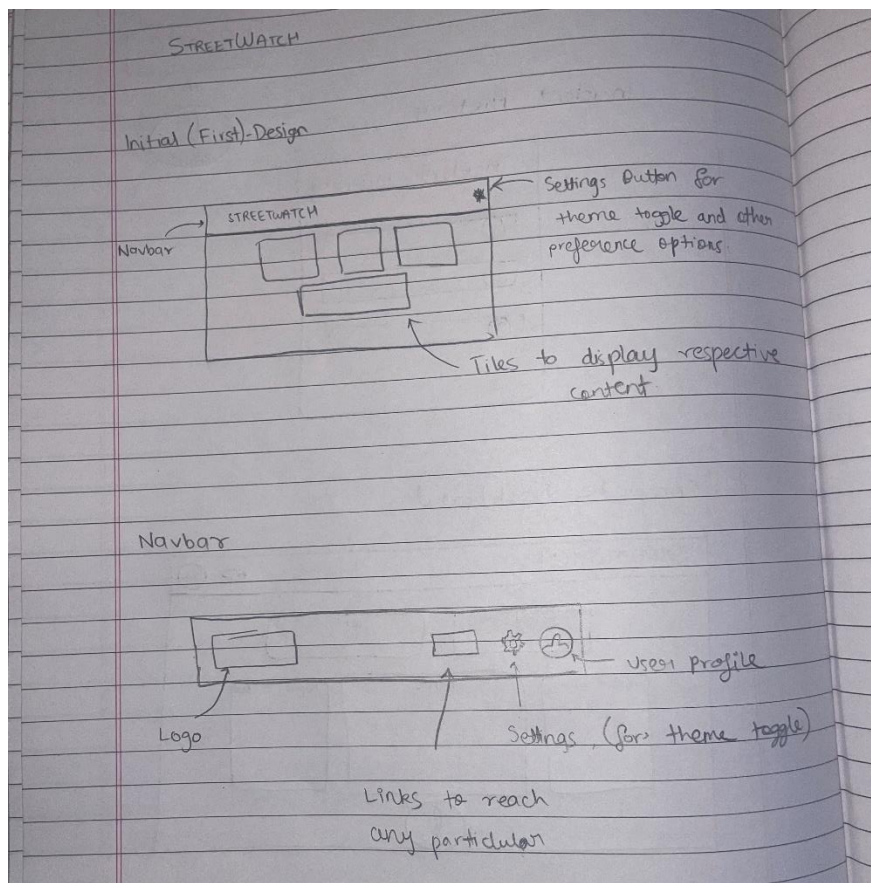 STREETWATCH
Initial (First)-Design
Settings Button for
theme toggle and other
preference options.
STREETWATCH
Navbar
Tiles to display respective
content
Navbar
User profile
Logo
Settings (for theme toggle)
Links to reach
any particular